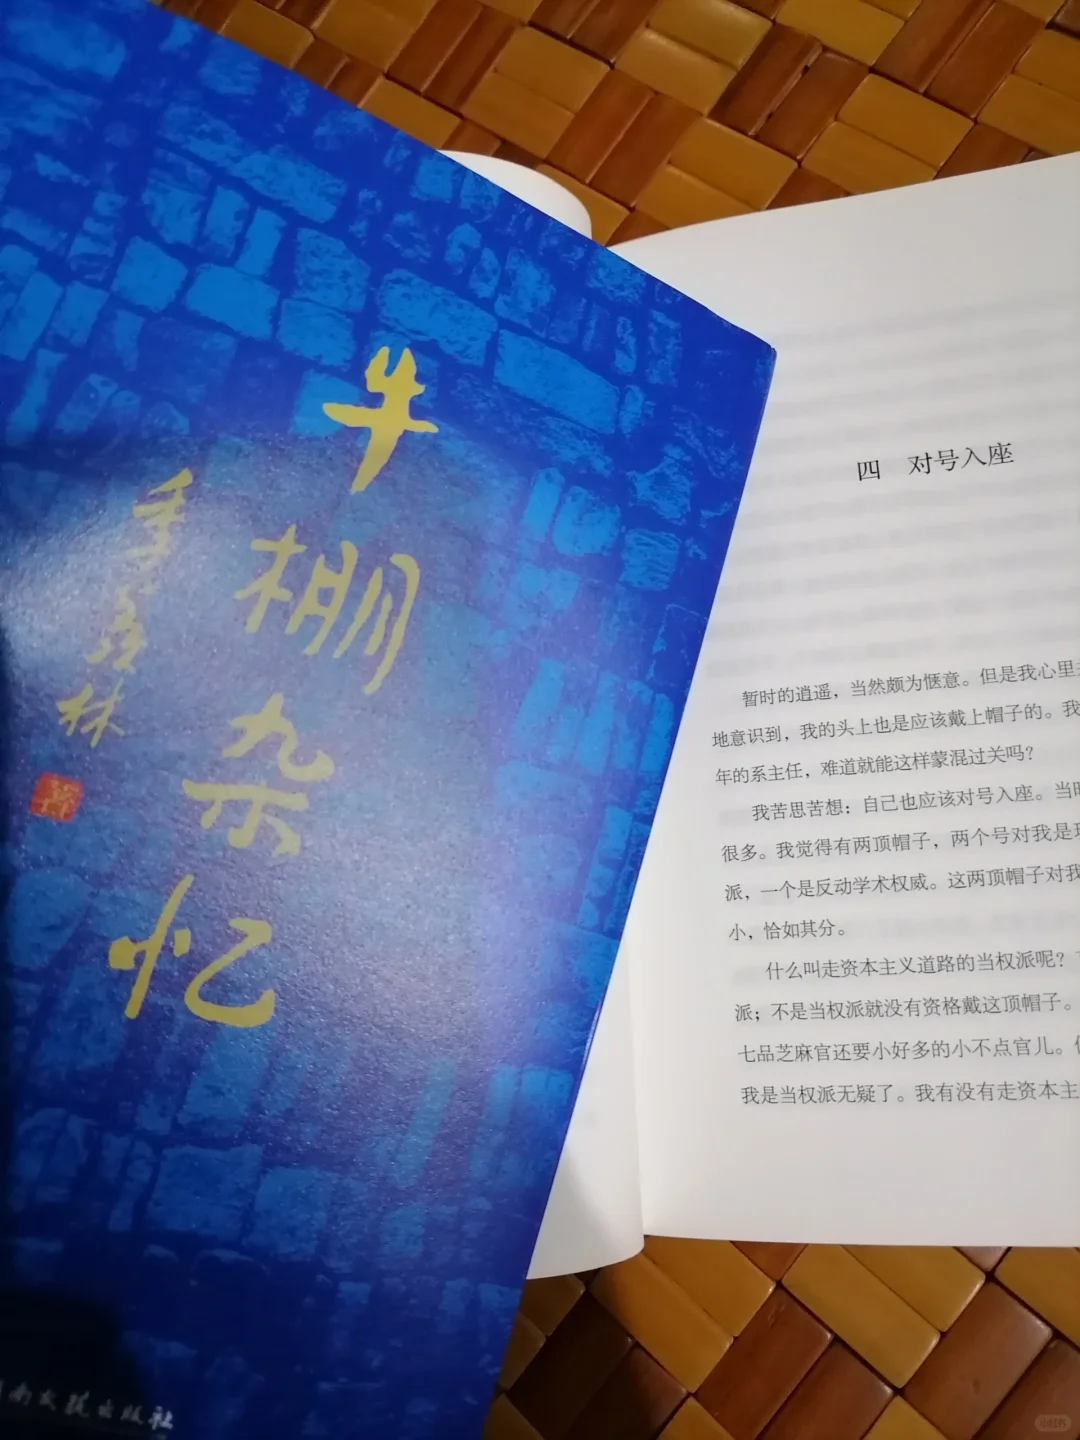 牛棚杂忆
季羡林
南文艺出版社
四 对号入座
暂时的逍遥，当然颇为惬意。但是我心里
地意识到，我的头上也是应该戴上帽子的。我
年的系主任，难道就能这样蒙混过关吗？
我苦思苦想：自己也应该对号入座。当时
很多。我觉得有两顶帽子，两个号对我是
派，一个是反动学术权威。这两顶帽子对我
小，恰如其分。
什么叫走资本主义道路的当权派呢？
派；不是当权派就没有资格戴这顶帽子。
七品芝麻官还要小好多的小不点官儿。
我是当权派无疑了。我有没有走资本主
小红书